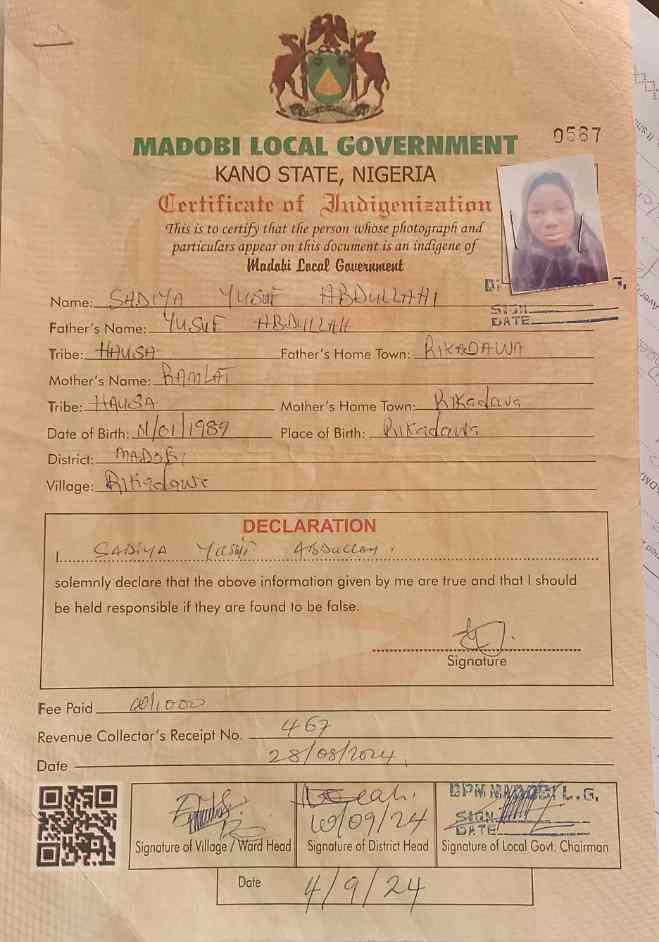 0587
MADOBI LOCAL GOVERNMENT
KANO STATE, NIGERIA
Certificate of Indigenization
This is to certify that the person whose photograph and
particulars appear on this document is an indigene of
Madobi Local Government
SIGN
DATE
Name: SADIYA YUSUF ABDULLAHI
Father's Name: YUSUF ABDULLAHI
Tribe: HAUSA Father's Home Town: RIKADAWA
Mother's Name: RAMLAT
Tribe: HAUSA Mother's Home Town: Rikadawa
Date of Birth: 11/01/1989 Place of Birth: Rikadawa
District: MADOBI
Village: Rikadawa
DECLARATION
I, SADIYA YUSUF Abdullahi
solemnly declare that the above information given by me are true and that I should
be held responsible if they are found to be false.
Signature
Fee Paid
Revenue Collector's Receipt No. 467
Date 28/08/2024
DPM MADOBI L.G,
SIGN
DATE
Signature of Village / Ward Head Signature of District Head Signature of Local Govt. Chairman
Date 4/9/24